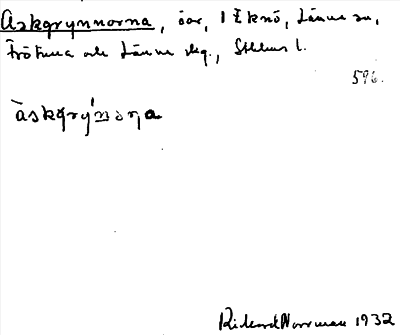 Askgrynnorna, öar, i Eknö, Länna sn,
Frötuna och Länna skg., Sthlms l.
596.
àskgrýnona
Rickard Norrman 1932